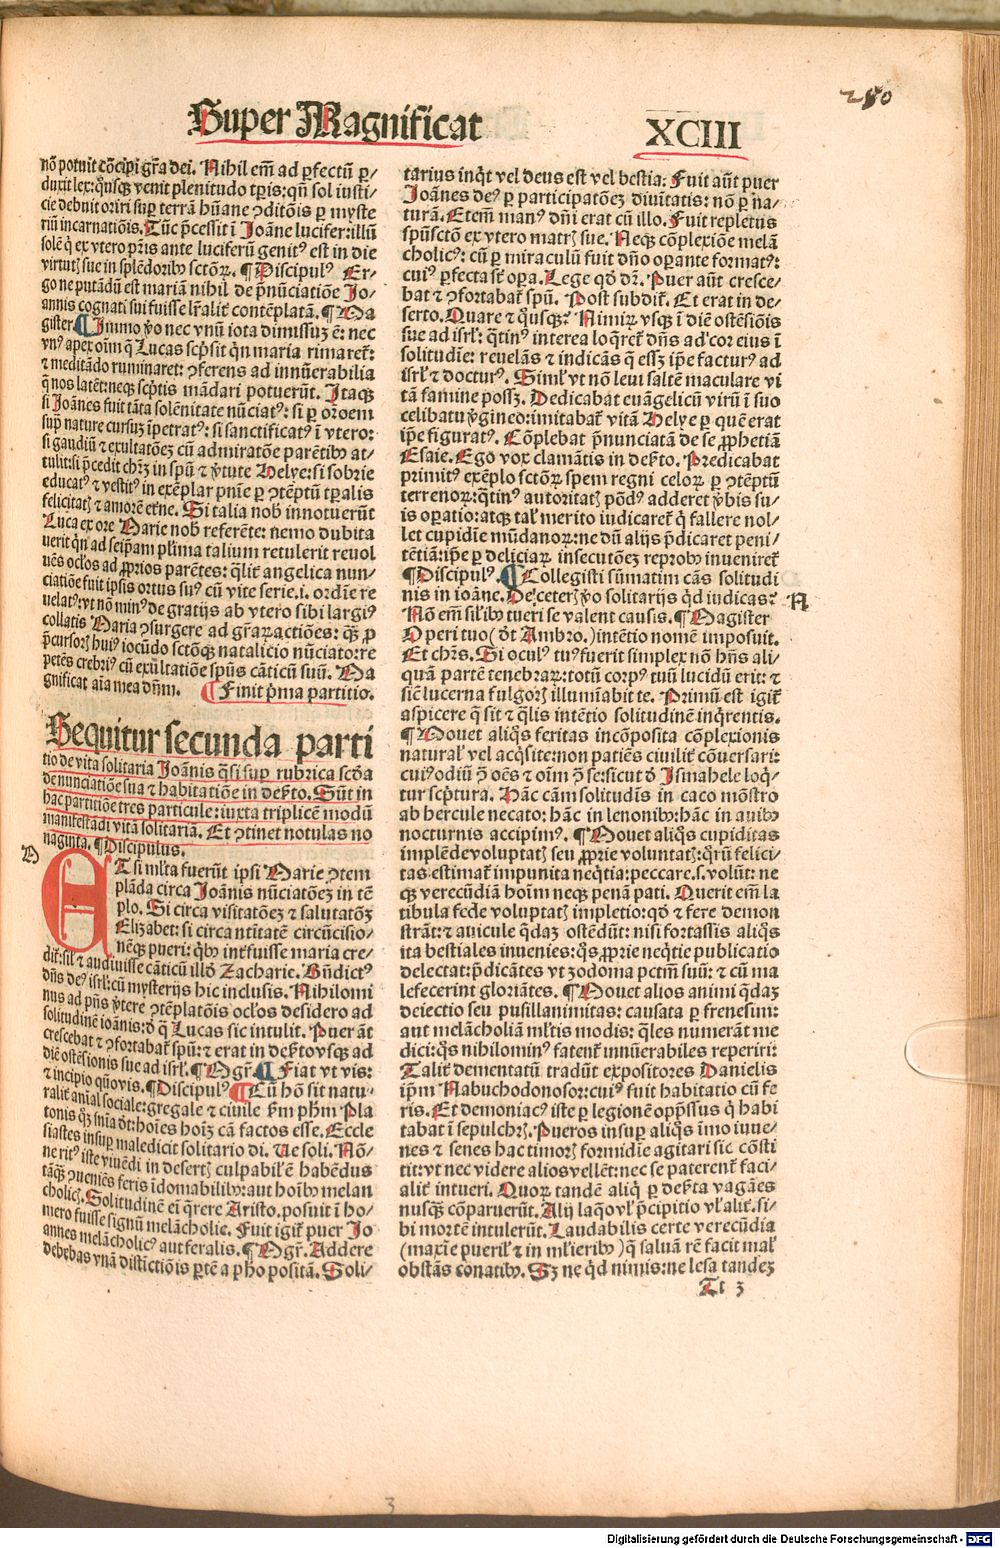 280
Super Magnificat
XCIII
nō potuit cōcipi gr̄a dei. Nihil em̄ ad ꝑfectū ꝑ/
duxit lex: qn̄usqꝫ venit plenitudo tꝑis: qn̄ sol iusti/
cie debuit oriri suꝑ terrā hūane ꝯditōis ꝑ myste
riū incarnatiōis. Tūc p̄cessit ī Joāne lucifer: illū
solē q̇ ex vtero pr̄is ante luciferū genitꝰ est in die
virtutꝭ sue in splēdoribꝰ sctōꝝ. ¶ Discipulꝰ Er/
go ne putādū est mariā nihil de p̄nūciatiōe Jo/
annis cognati sui fuisse lr̄alit᷑ contēplatā. ¶ Ma
gister. ¶ Immo v̊o nec vnū iota dimissuꝫ ē: nec
vnꝰ apex oīm q̄ Lucas scp̄sit qn̄ maria rimaret᷑:
⁊ meditādo ruminaret: ꝯferens ad innūerabilia
q̄ nos latēt: neqꝫ scp̄tis mādari potuerūt. Itaqꝫ
si Joānes fuit tāta solēnitate nūciatꝰ: si ꝑ or̄oem
suꝑ nature cursuꝫ īpetratꝰ: si sanctificatꝰ ī vtero:
si gaudiū ⁊ exultatōeꝫ cū admiratōe parētibꝰ at/
tulit: si p̄cedit chr̄ꝫ in spū ⁊ v̇tute Helye: si sobrie
educatꝰ ⁊ vestitꝰ in exēplar pnīe ꝑ ꝯtēptū tꝑalis
felicitatꝭ ⁊ amorē et̄ne. Si talia nob innotuerūt
Luca ex ore Marie nob referēte: nemo dubita
uerit qn̄ ad seip̄am pl̄ima talium retulerit reuol
uēs oclꝰos ad ꝓprios parētes: ql̄it᷑ angelica nun/
ciatiōe fuit ipsis ortus suꝰ cū vite serie .i. ordīe re
uelatꝰ: vt nō minꝰ de gratijs ab vtero sibi largiꝰ
collatis Maria ꝯsurgere ad gr̄aꝝ actiōes: qꝫ ꝓ
p̄cursorꝭ huiꝰ iocūdo sctōqꝫ natalicio nūciato: re
petēs crebriꝰ cū exultatiōe spūs cāticū suū. Ma
gnificat aīa mea dn̄m. ¶ Finit p̄ma partitio.
Sequitur secunda parti
tio de vita solitaria Joānis q̄si suꝑ rubrica scd̄a
de nunciatiōe sua ⁊ habitatiōe in deẜto. Sūt in
hac partitiōe tres particule: iuxta triplicē modū
manifestādi vitā solitariā. Et ꝯtinet notulas no
naginta. ¶ Discipulus.
ET si ml̄ta fuerūt ipsi Marie ꝯtem
plāda circa Joānis nūciatōeꝫ in tē
plo. Si circa visitatōeꝫ ⁊ salutatōꝫ
Elizabet: si circa ntītatē circūcisio/
nēqꝫ pueri: qͥbꝰ int̄fuisse maria cre/
dit᷑: sil̄ ⁊ audiuisse cāticū illd̓ Zacharie. Bn̄dictꝰ
dn̄s deꝰ isrl̄: cū mysterijs hic inclusis. Nihilomi
nus ad pn̄s v̇tere ꝯtēplatōis oclꝰos desidero ad
solitudinē ioānis: d̓ q̄ Lucas sic intulit. Puer āt
crescebat ⁊ ꝯfortabat᷑ spū: ⁊ erat in deẜto vsqꝫ ad
diē ostēsionis sue ad isrl̄. ¶ Mgr̄. ¶ Fiat vt vis:
⁊ incipio quōuis. ¶ Discipulꝰ ¶ Cū hō sit natu/
ralit᷑ anīal sociale: gregale ⁊ ciuile ẜm ph̄m Pla
tonis qꝫ sn̄ia d̓t: hoīes hoīꝫ cā factos esse. Eccle
siastes insuꝑ maledicit solitario di. Ue soli. Nō/
ne ritꝰ iste viuēdi in desertꝭ culpabil̄ ē habēdus
tāqꝫ ꝯueniēs feris īdomabilibꝰ: aut hoībꝰ melan
cholicꝭ. Solitudinē ei q̄rere Aristo. posuit ī ho/
mero fuisse signū melācholie. Fuit igit᷑ puer Jo
annes melācholicꝰ aut feralis. ¶ Mgr̄. Addere
debebas vnā distīctiōis ꝑtē a ph̄o positā. Soli/
tarius inqͥt vel deus est vel bestia: Fuit aūt puer
Joānes deꝰ ꝑ participatōeꝫ diuītatis: nō ꝑ na/
turā. Etem̄ manꝰ dn̄i erat cū illo. Fuit repletus
spūsctō ex vtero matrꝭ sue. Neqꝫ cōplexiōe melā
cholicꝰ: cū ꝑ miraculū fuit dn̄o oꝑante formatꝰ:
cuiꝰ ꝑfecta sūt oꝑa. Lege qd̓ dr̄. Puer aūt cresce/
bat ⁊ ꝯfortabat᷑ spū. Post subdit᷑. Et erat in de/
serto. Quare ⁊ qͥusqꝫ? Nimiꝝ vsqꝫ ī diē ostēsiōis
sue ad isrl̄: qͣtinꝰ interea loq̄ret᷑ dn̄s ad cor eius ī
solitudīe: reuelās ⁊ indicās q̄ essꝫ ip̄e facturꝰ ad
isrl̄ ⁊ docturꝰ. Siml̄ vt nō leui saltē maculare vi
tā famine possꝫ. Dedicabat euāgelicū virū ī suo
celibatu v̇gineo: imitabat᷑ vitā Helye ꝑ quē erat
ip̄e figuratꝰ. Cōplebat p̄nunciatā de se ꝓphetiā
Esaie. Ego vox clamātis in deẜto. Predicabat
primitꝰ exēplo sctōꝝ spem regni celoꝝ ꝑ ꝯtēptū
terrenoꝝ: qͣtinꝰ autoritatꝭ pōdꝰ adderet v̇bis su/
is oꝑatio: atqꝫ tal̄ merito iudicaret᷑ q̇ fallere nol/
let cupidīe mūdanoꝝ: ne dū alijs p̄dicaret peni/
tētiā: ip̄e ꝑ deliciaꝝ insecutōeꝫ reprobꝰ inueniret᷑
¶ Discipulꝰ. ¶ Collegisti sūmatim cās solitudi
nis in ioāne. De ceterꝭ v̊o solitarijs qͥd iudicas?
Nō em̄ sil̄ibꝰ tueri se valent causis. ¶ Magister
Operi tuo (d̓t Ambro.) intētio nomē imposuit.
Et chr̄s. Si oculꝰ tuꝰ fuerit simplex nō hn̄s ali/
quā partē tenebraꝝ: totū corpꝰ tuū lucidū erit: ⁊
siē lucerna fulgorꝭ illumīabit te. Primū est igit᷑
aspicere q̄ sit ⁊ q̄lis intētio solitudinē inq̄rentis.
¶ Mouet aliqͦs feritas incōposita cōplexionis
natural̄ vel acq̄site: non patiēs ciuilit᷑ cōuersari:
cuiꝰ odiū p̄ oēs ⁊ oīm p̄ se: sicut d̓ Ismahele loqͥ/
tur scp̄tura. Hāc cām solitudīs in caco mōstro
ab hercule necato: hāc in lenonibꝰ: hāc in auibꝰ
nocturnis accipimꝰ. ¶ Mouet aliqͦs cupiditas
implēde voluptatꝭ seu ꝓprie voluntatꝭ: qͦrū felici/
tas estimat᷑ impunita neqͥtia: peccare .s. volūt: ne
qꝫ verecūdiā hoīm neqꝫ penā pati. Querit em̄ la
tibula fede voluptatꝭ impletio: qd̓ ⁊ fere demon
strāt: ⁊ auicule q̄daꝫ ostēdūt: nisi fortassis aliqͦs
ita bestiales inuenies: qͦs ꝓprie neqͥtie publicatio
delectat: p̄dicātes vt zodoma pctm̄ suū: ⁊ cū ma
lefecerint gloriātes. ¶ Mouet alios animi q̄daꝫ
deiectio seu pusillanimitas: causata ꝑ frenesim:
aut melācholiā ml̄tis modis: q̄les numerāt me
dici: qͦs nihilominꝰ fatent᷑ innūerabiles reperiri:
Talit᷑ dementatū tradūt expositores Danielis
ip̄m Nabuchodonosor: cuiꝰ fuit habitatio cū fe
ris. Et demoniacꝰ iste ꝑ legionē opp̄ssus q̇ habi
tabat ī sepulchrꝭ. Pueros insuꝑ aliqͦs īmo iuue/
nes ⁊ senes hac timorꝭ formidīe agitari sic cōsti
tit: vt nec videre alios vellēt: nec se paterent᷑ faci/
alit᷑ intueri. Quoꝝ tandē aliqͥ ꝑ deẜta vagāes
nusqͣꝫ cōparuerūt. Alij laqͦ vl̄ p̄cipitio vl̄ alit᷑. si/
bi mortē intulerūt. Laudabilis certe verecūdia
(maxīe pueril̄ ⁊ in ml̄ieribꝰ) q̄ saluā rē facit mal̄
obstās conatibꝰ. Sꝫ ne qͥd nimis: ne lesa tandeꝫ
Tt 3
3
Digitalisierung gefördert durch die Deutsche Forschungsgemeinschaft - DFG